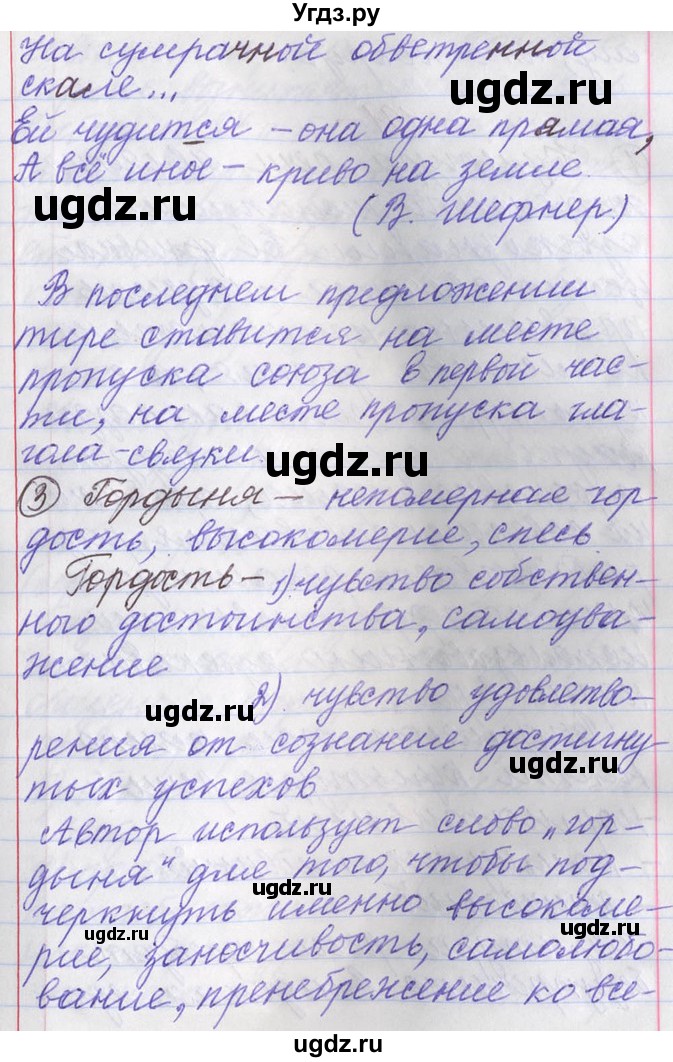 Угдз.ру
На сумрачной обветренной
скале...
ugdz.ru
Ей чудится – она одна прямая,
А всё иное – криво на земле.
ugdz.ru
(В. Шефнер)
В последнем предложении
тире ставится на месте
пропуска союза в первой час-
ти, на месте пропуска гла-
гола-связки.
ugdz.ru
③ Гордыня – непомерная гор
дость, высокомерие, спесь
Гордость – 1) чувство собствен-
ного достоинства, самоува-
жение
ugdz.ru
2) чувство удовлетво-
рения от сознание достигну
ugdz.ru
тых успехов
Автор использует слово „гор-
дыня“ для того, чтобы под-
ugdz.ru
черкнуть именно высокоме-
ugdz.ru
рие, заносчивость, самолюбо-
вание, пренебрежение ко все-
ugdz.ru